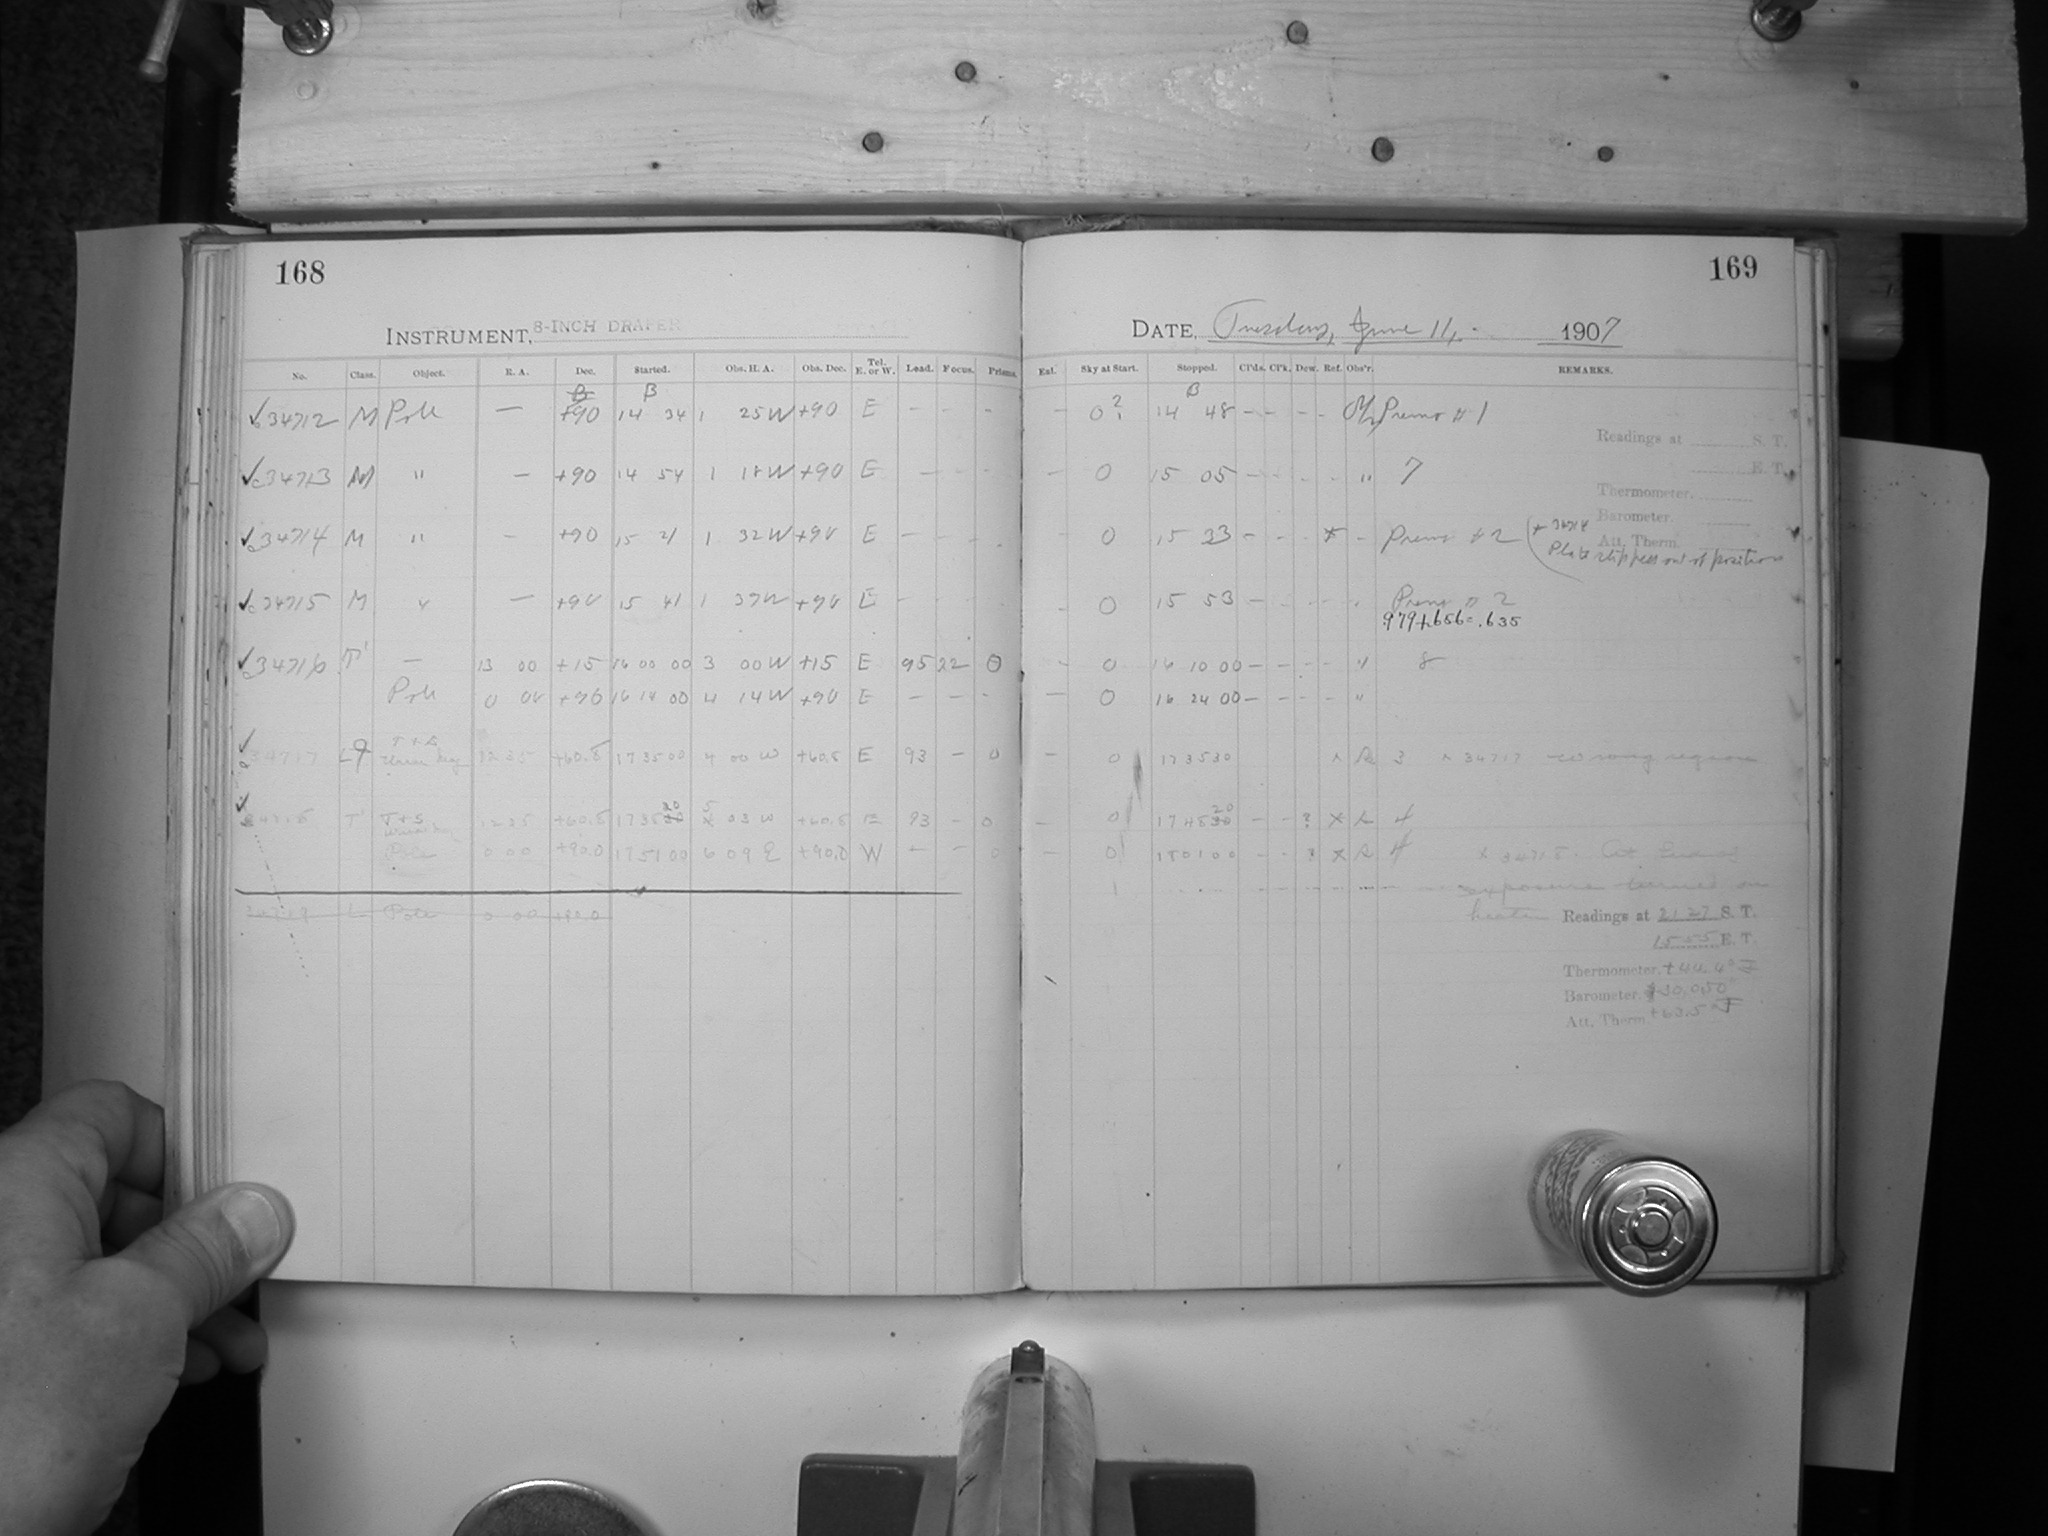 168
INSTRUMENT, 8-INCH DRAPER
No. Class. Object. R. A. Dec. Started. Obs. H. A. Obs. Dec. Tel. E. or W. Lead. Focus. Prisms.
B
✓ 34712 M Pole — +90 14 34 1 25 W +90 E - - -
✓ 34713 M " — +90 14 54 1 18 W +90 E - - -
✓ 34714 M " - +90 15 21 1 32 W +90 E - - -
✓ 34715 M " — +90 15 41 1 37 W +90 E - - -
✓ 34716 T' — 13 00 +15 16 00 00 3 00 W +15 E 95 22 0
Pole 0 00 +90 16 14 00 4 14 W +90 E - - -
✓ 34717 12 35 +60.5 17 35 00 4 00 W +60.5 E 93 - 0
✓ 34718 T' T+S 12 35 +60.5 17 38 20 5 03 W +60.5 E 93 - 0
Pole 0 00 +90.0 17 51 00 6 09 E +90.0 W - - 0
34719 L Pole 0 00 +90.0
169
DATE, Tuesday, June 11, 1907
Ext. Sky at Start. Stopped. Cl'ds. Cl'k. Dew. Ref. Obs'r. REMARKS.
B
- 0 2 1 14 48 - - - - Premo # 1
Readings at S. T.
E. T.
- 0 15 05 - - - - " 7
Thermometer.
Barometer.
Att. Therm.
- 0 15 33 - - - * - Premo # 2 (* 34714
Plate slipped out of position
- 0 15 53 - - - - " Premo # 2
.979+.656=.635
- 0 16 10 00 - - - - " 8
- 0 16 24 00 - - - - "
- 0 17 35 30 3 × 34717 wrong region
- 0 17 48 20 - - ? × R 4
- 0 18 01 00 - - ? × R 4 × 34718.
exposure turned on
heater Readings at 21 27 S. T.
15 55 E. T.
Thermometer. +44.4° F
Barometer. 30.050
Att. Therm. +63.5° F